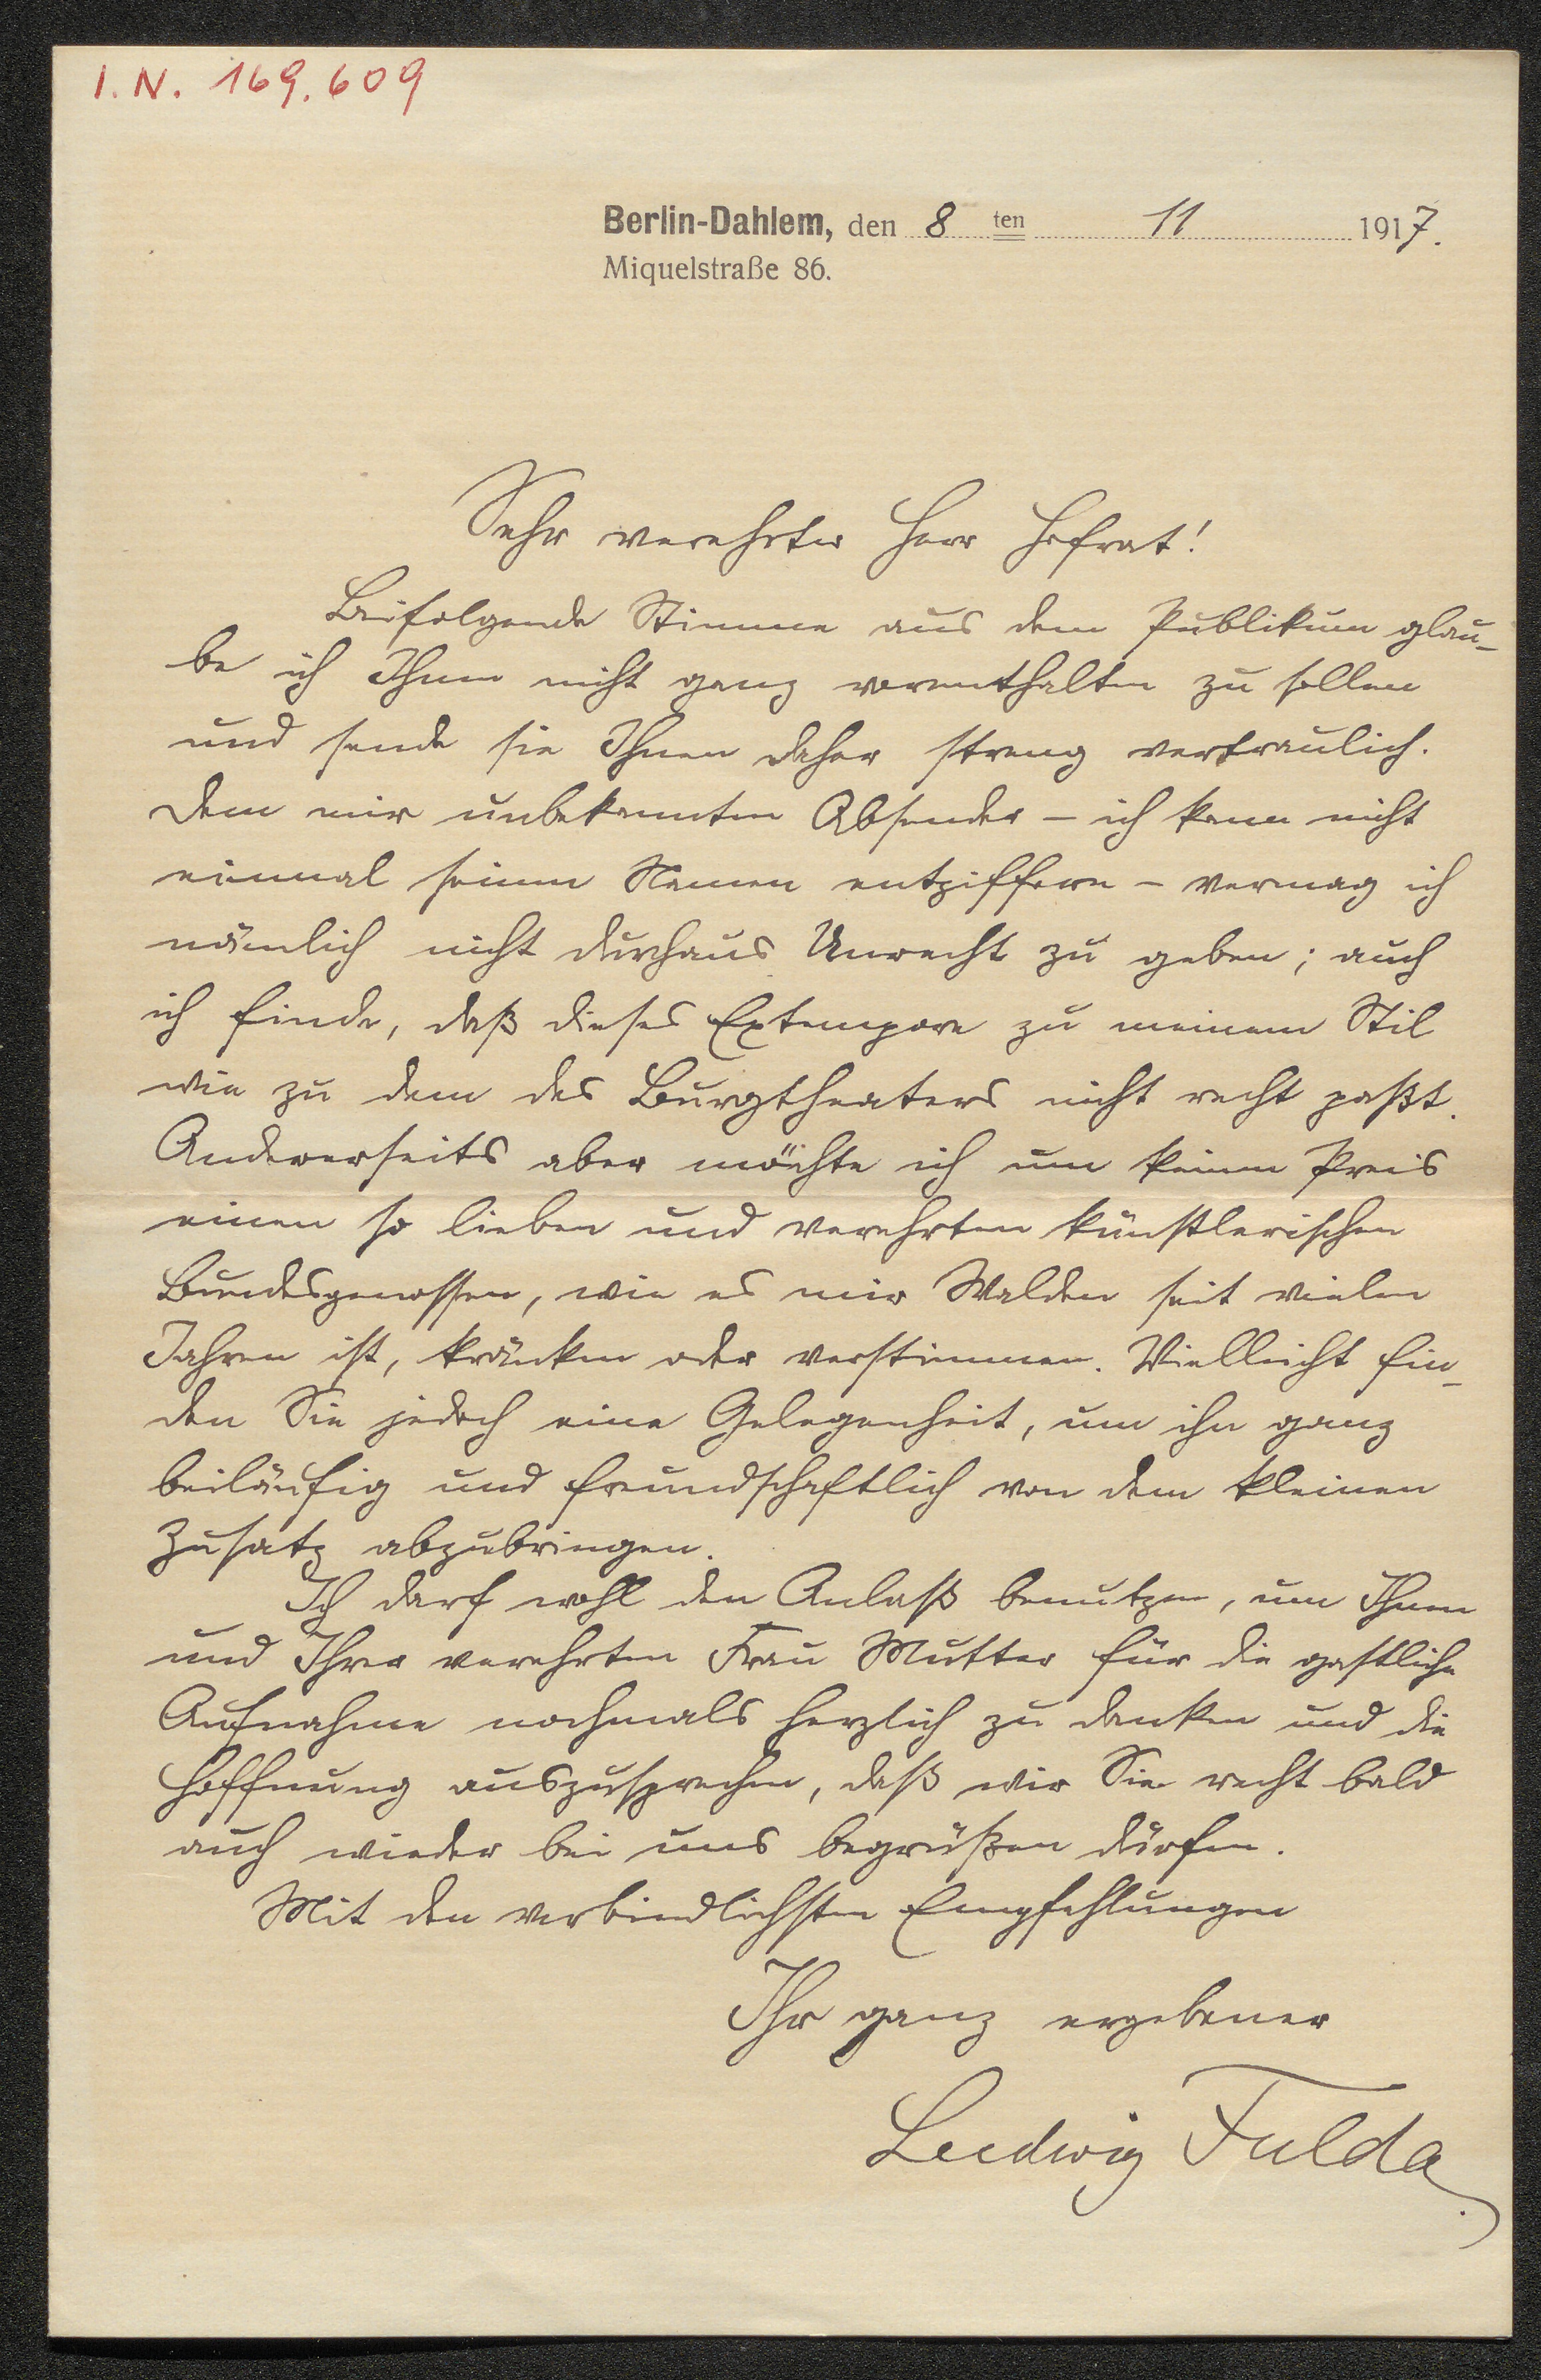 I.N. 169.609
Berlin-Dahlem, den 8 ten 11 1917.
Miquelstraße 86.
Sehr verehrter Herr Hofrat!
Beifolgende Stimme aus dem Publikum glau-
be ich Ihnen nicht ganz vorenthalten zu sollen
und sende sie Ihnen daher streng vertraulich.
Dem mir unbekannten Absender – ich kann nicht
einmal seinen Namen entziffern – vermag ich
nämlich nicht durchaus Unrecht zu geben; auch
ich finde, daß dieses Extempore zu meinem Stil
wie zu dem des Burgtheaters nicht recht paßt.
Andererseits aber möchte ich um keinen Preis
einen so lieben und verehrten künstlerischen
Bundesgenossen, wie es mir Walden seit vielen
Jahren ist, kränken oder verstimmen. Vielleicht fin-
den Sie jedoch eine Gelegenheit, um ihn ganz
beiläufig und freundschaftlich von dem kleinen
Zusatz abzubringen.
Ich darf wohl den Anlaß benutzen, um Ihnen
und Ihrer verehrten Frau Mutter für die gastliche
Aufnahme nochmals herzlich zu danken und die
Hoffnung auszusprechen, daß wir Sie recht bald
auch wieder bei uns begrüßen dürfen.
Mit den verbindlichsten Empfehlungen
Ihr ganz ergebener
Ludwig Fulda.